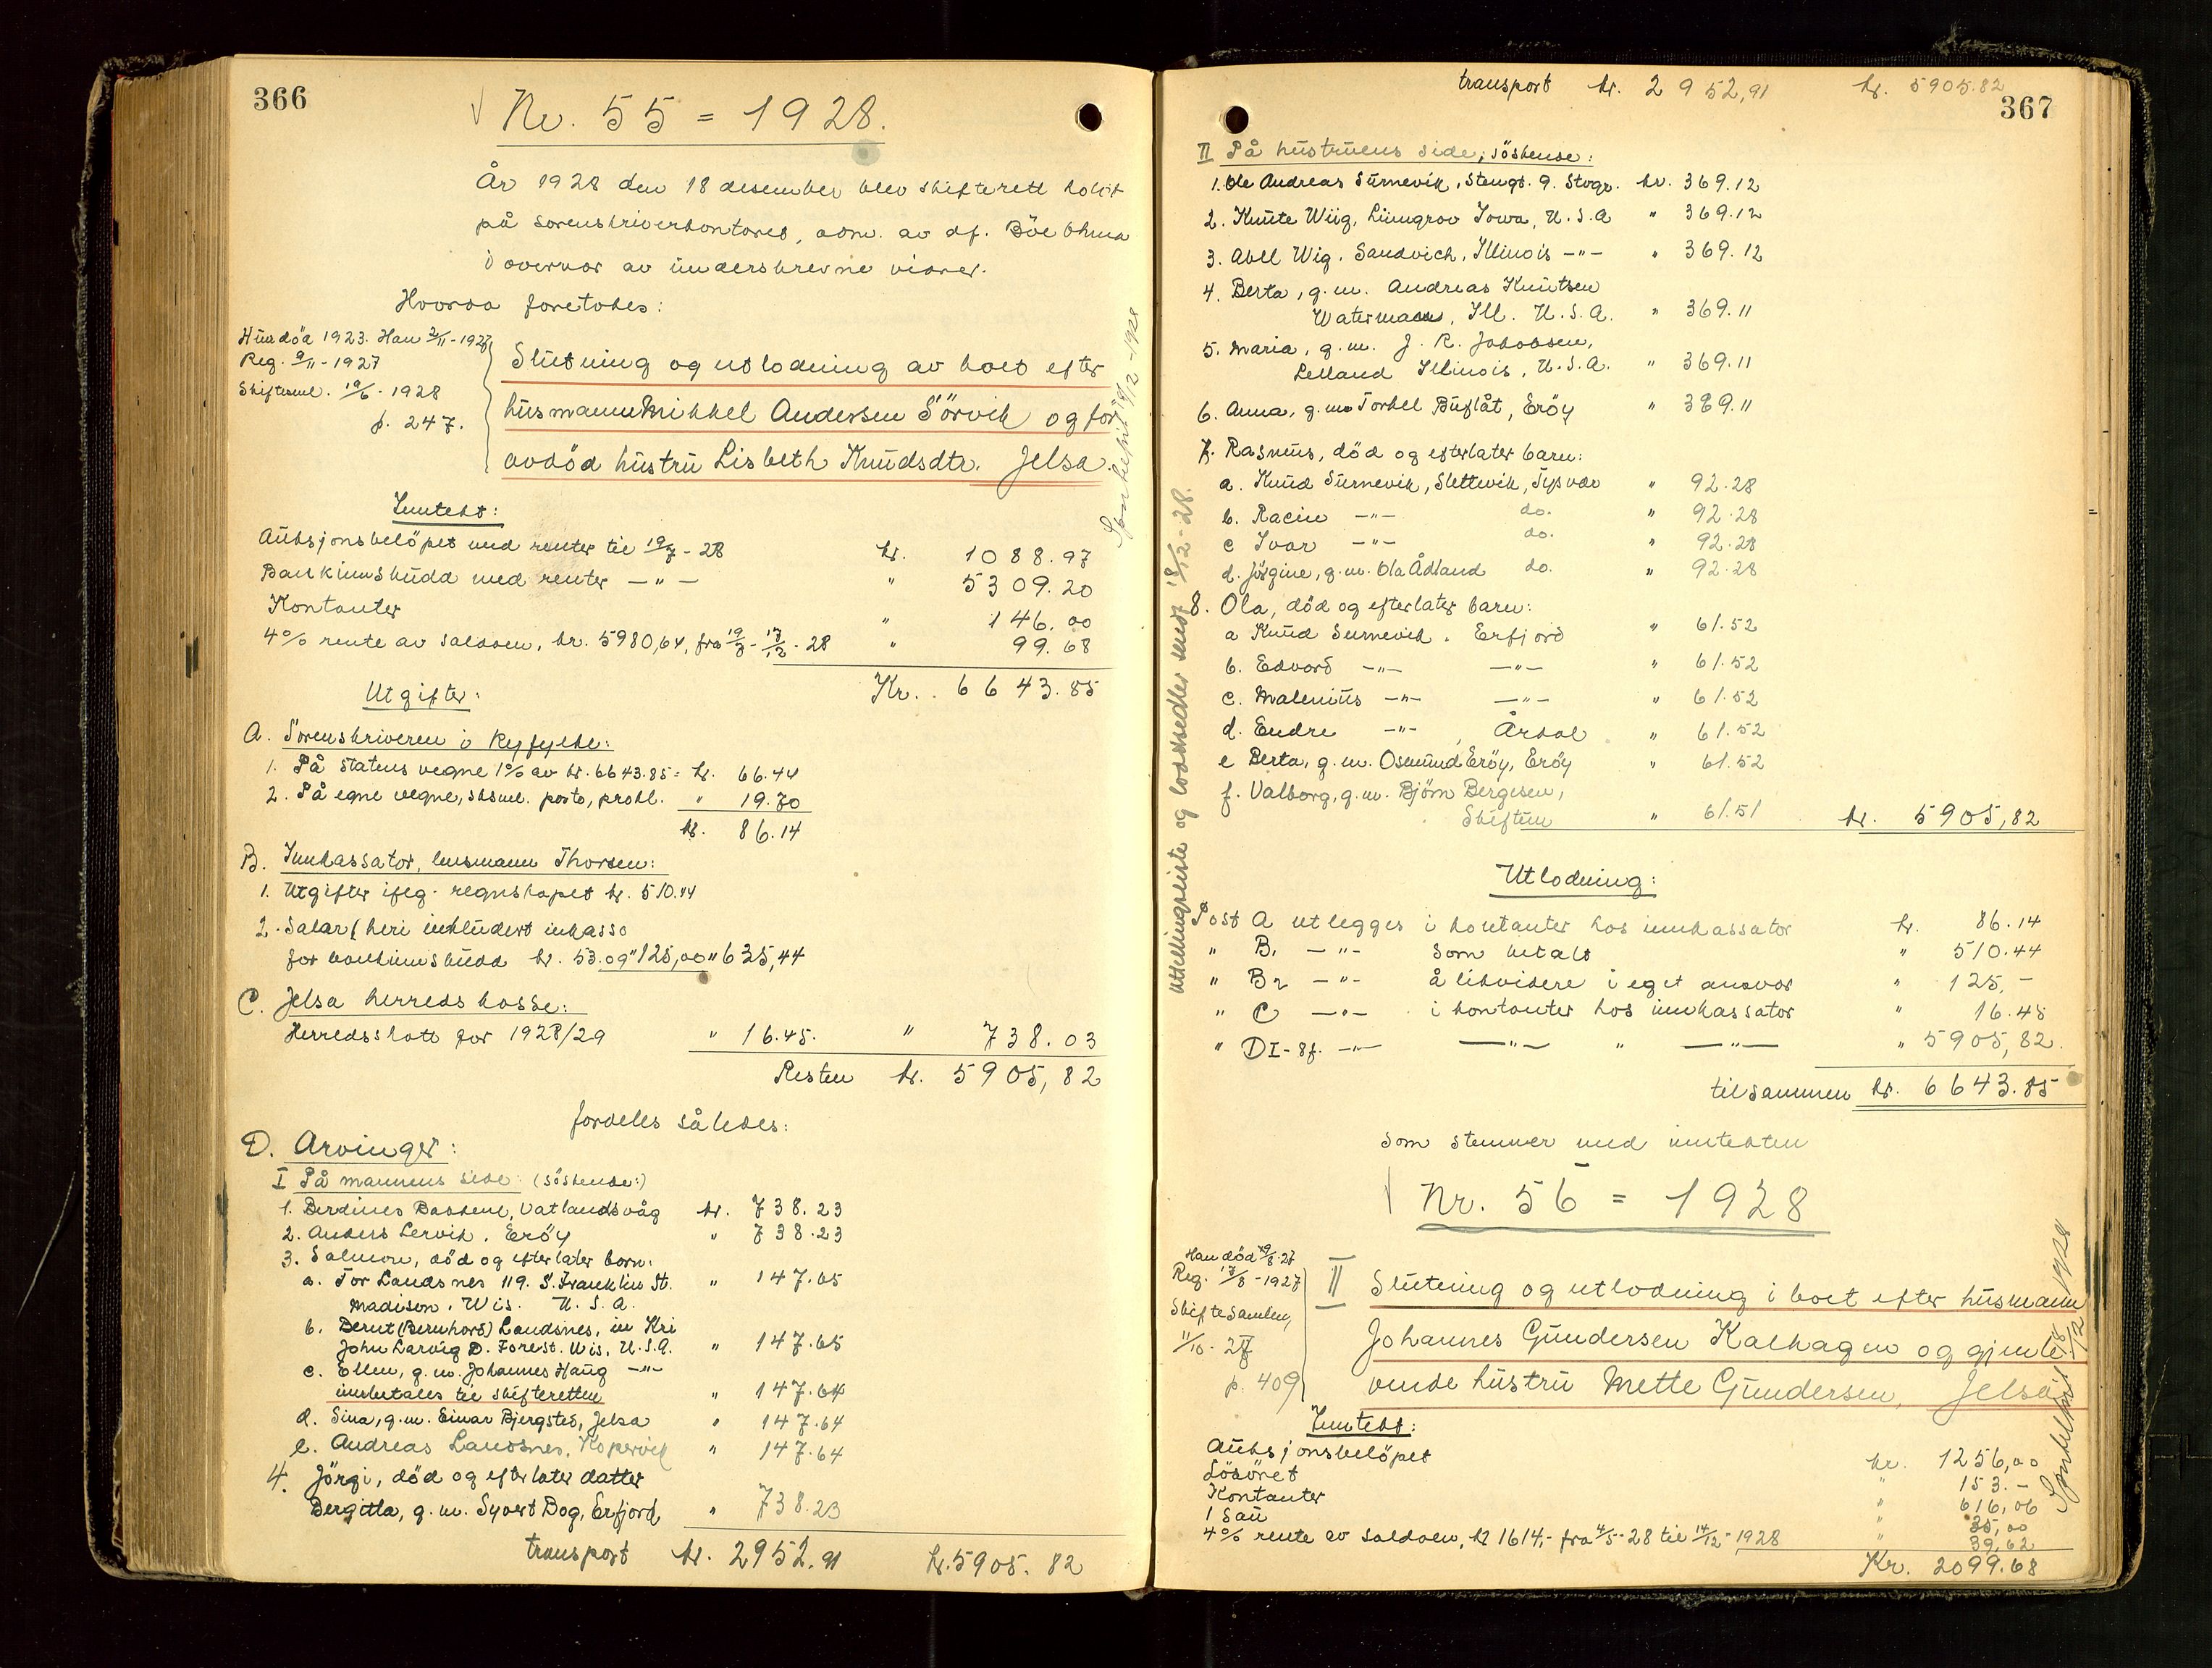 366
Nr. 55 = 1928.
År 1928 den 18 desember blev skifterett holdt
på sorenskriverkontoret, adm. av df. Böe
i overvær av underskrevne vidner.
Hvorda foretokes:
Hun död 1923. Han 2/11-1927
Reg. 9/11-1927
Skiftesml. 19/6-1928
p. 247.
Slutning og utlodning av boet efter
husmann Mikkel Andersen Sörvik og for
avdöd hustru Lisbeth Knudsdtr. Jelsa.
Inntekt:
Auksjonsbelöpet med renter til 19/7-28 kr. 1088.97
Bankinnskudd med renter -"- " 5309.20
Kontanter " 146.00
4% rente av saldoen, kr. 5980,64, fra 19/7-17/12-28 " 99.68
Kr. 6643.85
Utgifter:
A. Sorenskriveren i Ryfylke:
1. På statens vegne 1% av kr. 6643.85 = kr. 66.44
2. På egne vegne, sksml. porto, prokl. " 19.70
kr. 86.14
B. Innkassator, lensmann Thorsen:
1. Utgifter ifлg. regnskapet kr. 510.44
2. Salar (heri inkludert inkasso
for bankinnskudd kr. 53.09 " 125,00 " 635,44
C. Jelsa herredskasse:
Herredsskatt for 1928/29 " 16.45. " 738.03
Resten kr. 5905,82
fordeles således:
D. Arvinger:
I På mannens side: (söskende:)
1. Berdines Bakken, Vatlandsvåg kr. 738.23
2. Anders Lervik, Eröy " 738.23
3. Salmon, död og efterlater barn:
a. Tor Landsnes 119. S. Franklin St. " 147.65
Madison. Wis. U.S.A.
b. Bernt (Bernhard) Landsnes, in Kri
John Larvig D. Forest. Wis. U.S.A. " 147.65
c. Ellen, g.m. Johannes Haug -"-
innbetales til skifteretten " 147.64
d. Sina, g.m. Einar Bjergsted, Jelsa " 147.64
e. Andreas Landsnes, Kopervik " 147.64
4. Jörgi, död og efterlater datter
Bergitta, g.m. Syvert Bog, Erfjord " 738.23
transport kr. 2952.91 kr. 5905.82
367
transport kr. 2952,91 kr. 5905.82
II På hustruens side, söskense:
1. Ole Andreas Surnevik, Stengt. 9. Stvgr. kr. 369.12
2. Knute Wiig, Linngrov Iowa, U.S.A " 369.12
3. Abel Wig. Sandvich, Illinois -"- " 369.12
4. Berta, g.m. Andreas Knutsen
Waterman, Ill. U.S.A. " 369.11
5. Maria, g.m. J. R. Jakobsen,
Lelland Illinois, U.S.A. " 369.11
6. Anna, g.m. Torkel Buflåt, Eröy " 369.11
7. Rasmus, död og efterlater barn:
a. Knud Surnevik, Slettevik, Tysvær " 92.28
b. Racin -"- do. " 92.28
c Ivar -"- do. " 92.28
d. Jörgine, g.m. Ola Ådland do. " 92.28
8. Ola, död og efterlater barn:
a Knud Surnevik. Erfjord " 61.52
b. Edvard -"- -"- " 61.52
c. Malenius -"- -"- " 61.52
d. Endre -"-, Årdal " 61.52
e Berta, g.m. Osmund Eröy, Eröy " 61.52
f. Valborg, g.m. Björn Bergesen,
Skiftun " 61.51 kr. 5905,82
Utlodning:
Post A utlegges i kontanter hos innkassator kr. 86.14
" B1 -"- som betalt " 510.44
" B2 -"- å likvidere i eget ansvar " 125,-
" C -"- i kontanter hos innkassator " 16.45
" DI-8f. -"- -"- " -"- " 5905,82.
tilsammen kr. 6643.85
som stemmer med inntekten
Uttellingsliste og loddsedler sendt 18/12-28.
Nr. 56 = 1928
Han död 29/8-27
Reg. 17/8-1927
Skiftesamling
11/10-27
p. 409
II Slutning og utlodning i boet efter husmann
Johannes Gundersen Kalhagen og gjenle-
vende hustru Mette Gundersen, Jelsa
Inntekt:
Auksjonsbelöpet kr. 1256,00
Lösöret " 153.-
Kontanter " 616,06
1 Sau " 35,00
4% rente av saldoen, kr 1614,- fra 4/5-28 til 14/12-1928 " 39,62
Kr. 2099.68